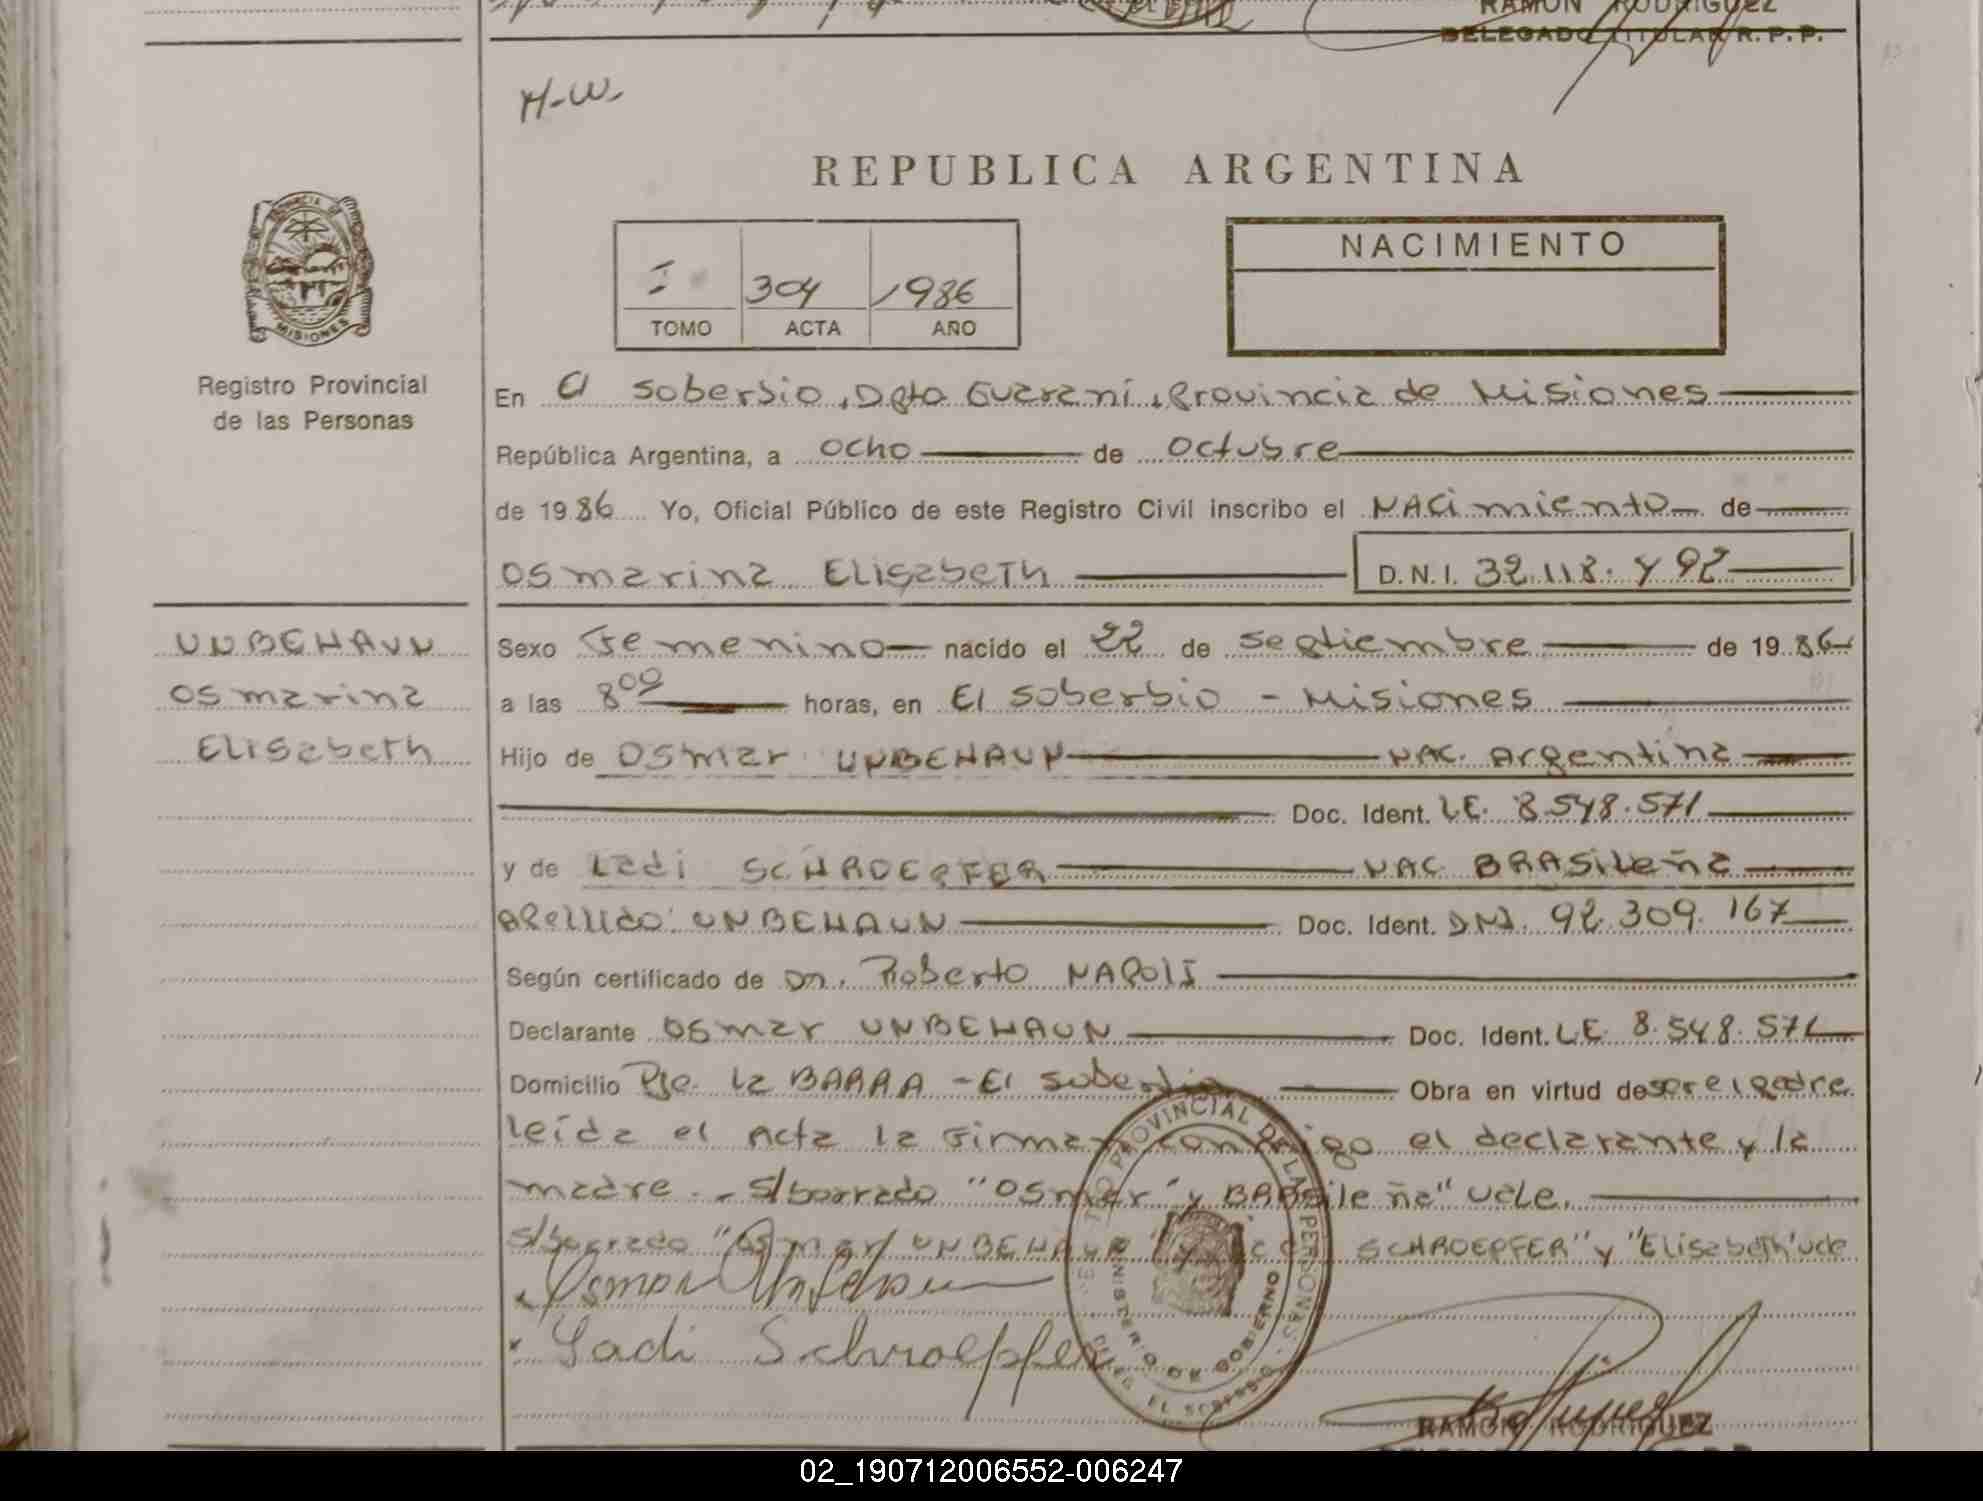 RAMON RODRIGUEZ
DELEGADO TITULAR R. P. P.
H-W.
REPUBLICA ARGENTINA
I 304 1986
TOMO ACTA AÑO
NACIMIENTO
PROVINCIA DE MISIONES
Registro Provincial
de las Personas
En El Soberbio, Dpto Guaraní, Provincia de Misiones
República Argentina, a ocho de octubre
de 1986 Yo, Oficial Público de este Registro Civil inscribo el NACimiento de
Osmarina ELisabeTh D.N.I. 32.118.492
UNBEHAUN
Osmarina
ELisabeth
Sexo Femenino nacido el 22 de septiembre de 1986
a las 8 00 horas, en El Soberbio - Misiones
Hijo de Osmar UNBEHAUN NAC. Argentina
Doc. Ident. LE. 8.548.571
y de Ladi SCHROEPFER NAC BRASileña
apellido: UNBEHAUN Doc. Ident. DNI. 92.309.167
Según certificado de Dn. Roberto NAPOLI
Declarante Osmar UNBEHAUN Doc. Ident. LE. 8.548.571
Domicilio Pje. La BARRA - El Soberbio Obra en virtud de ser el padre
leída el Acta la firman conmigo el declarante y la
madre. - s/borrado "Osmar" y BRASileña" vale.
s/borrado "Osmar UNBEHAUN" y SCHROEPFER" y "Elisabeth" vale
Osmar Unbehaun
Ladi Schroepfer
REGISTRO PROVINCIAL DE LAS PERSONAS
MINISTERIO DE GOBIERNO
DELEG. EL SOBERBIO
RAMON RODRIGUEZ
02_190712006552-006247